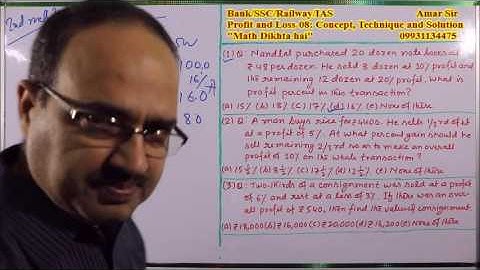 Bank/SSC/Railway/IAS Amar Sir
Profit and Loss-08: Concept, Technique and Solution
"Math Dikhta hai" 09931134475
2nd
100.0
16%
16.0
80
(1) Q: Nandlal purchased 20 dozen note books at
₹48 per dozen. He sold 8 dozen at 10% profit and
the remaining 12 dozen at 20% profit. What is
profit percent in this transaction?
(a) 15% (b) 18% (c) 17% (d) 16% (e) None of these
(2) Q: A man buys rice for ₹4400. He sells 1/3rd of it
at a profit of 5%. At what percent gain should he
sell remaining 2/3rd so as to make an overall
profit of 10% on the whole transaction?
(e) None of these
(3) Q: Two-Kinds of a consignment was sold at a profit
of 6% and rest at a loss of 3%. If there was an over
all profit of ₹540, then find the value of consignment
(a) ₹18,000 (b) ₹16,000 (c) ₹20,000 (d) ₹16,200 (e) None of these